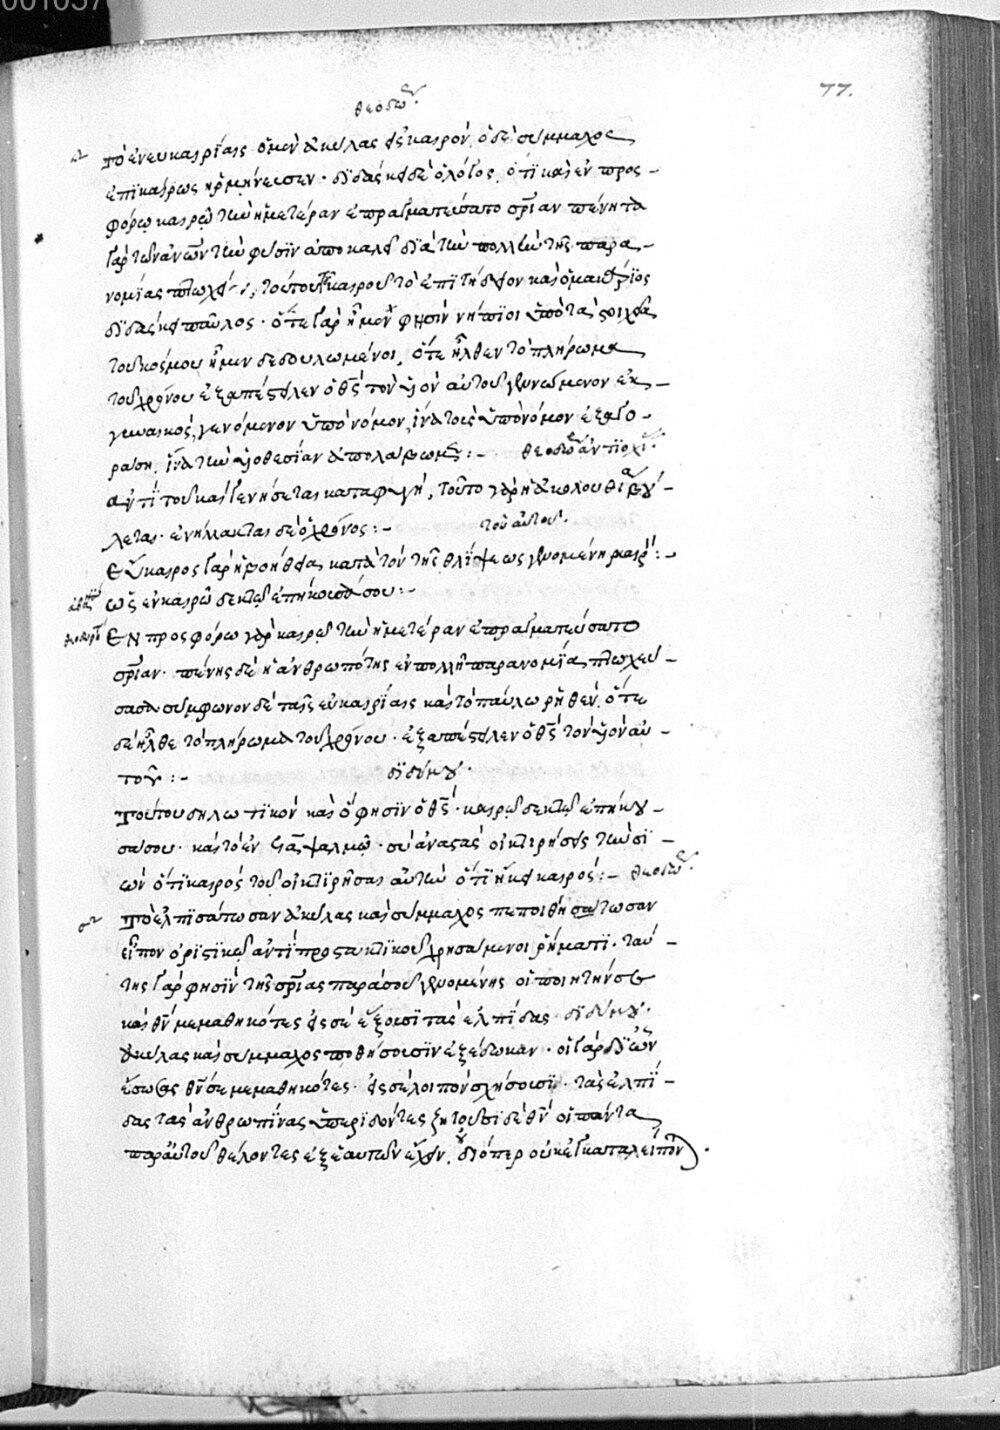 77.
θεοδω
Τὸ ἐν εὐκαιρίαις ὁ μὲν ἀκύλας εἰς καιρόν, ὁ δὲ σύμμαχος
ἐπικαίρως ἡρμήνευσεν· διδάσκει δὲ ὁ λόγος, ὅτι καὶ ἐν προς-
φόρω καιρῶ τὴν ἡμετέραν ἐπραγματεύσατο σρίαν πένητα
γὰρ τῶν ἀνων τὴν φύσιν ἀποκαλεῖ διὰ τὴν πολλὴν τῆς παρα-
νομίας
τούτου τοῦ καιροῦ τὸ ἐπιτήδειον καὶ ὁ μακάριος
διδάσκει παῦλος· ὅτε γὰρ ἦμεν φησὶν νήπιοι ὑπὸ τὰ στοιχεῖα
τοῦ κόσμου ἦμεν δεδουλωμένοι, ὅτε ἦλθεν τὸ πλήρωμα
τοῦ χρόνου ἐξαπέστειλεν ὁ θς τὸν υἱὸν αὐτοῦ γενόμενον ἐκ-
γυναικός, γενόμενον ὑπὸ νόμον, ἵνα τοὺς ὑπὸ νόμον ἐξαγο-
ράση, ἵνα τὴν υἱοθεσίαν ἀπολάβωμεν:- θεοδω ἀντιοχ
Ἀντὶ τοῦ καὶ γενήσεται καταφυγή, τοῦτο γὰρ ἡ ἀκολουθία βού-
λεται· ἐνήλλακται δὲ ὁ χρόνος:- τοῦ αὐτοῦ.
Εὔκαιρος γὰρ ἡ βοήθεια κατὰ τὸν τῆς θλίψεως γενομένη καιρόν:-
ὡς ἐν καιρῶ δεκτῶ ἐπήκουσά σου:-
θεοδωρί Ἐν προσφόρω γὰρ καιρῶ τὴν ἡμετέραν ἐπραγματεύσατο
σρίαν· πένης δὲ ἡ ἀνθρωπότης ἐν πολλῆ παρανομία πτωχεύ-
σασα σύμφωνον δὲ ταῖς εὐκαιρίαις καὶ τὸ παύλω ῥηθέν, ὅτε
δὲ ἦλθε τὸ πλήρωμα τοῦ χρόνου· ἐξαπέστειλεν ὁ θς τὸν υἱὸν αὐ-
τοῦ:- διδύμου·
Τούτου δηλωτικὸν καὶ ὅ φησιν ὁ θς· καιρῶ δεκτῶ ἐπήκου-
σά σου· καὶ τὸ ἐν ψαλμῶ· σὺ ἀναστὰς οἰκτιρήσεις τὴν σι-
ών ὅτι καιρὸς τοῦ οἰκτιρῆσαι αὐτὴν ὅτι ἥκει καιρός:- θεοδω
Τὸ ἐλπισάτωσαν ἀκύλας καὶ σύμμαχος πεποιθησάτωσαν
εἶπον ὁριστικῶ ἀντὶ προστακτικοῦ χρησάμενοι ῥήματι· ταύ-
της γάρ φησιν τῆς σρίας παρὰ σοῦ γενομένης οἱ ποιητήν σε
καὶ θν μεμαθηκότες εἰς σὲ ἕξουσι τὰς ἐλπίδας· διδύμου·
ἀκύλας καὶ σύμμαχος ποθήσουσιν ἐξέδωκαν· οἱ γὰρ δι ὧν
ἔσωσας θν σε μεμαθηκότες· εἰς σὲ λοιπὸν σχήσουσι· τὰς ἐλπί-
δας τὰς ἀνθρωπίνας ὑπεριδόντες ζητοῦσι δὲ θν οἱ πάντα
παρ αὐτοῦ θέλοντες ἐξ ἑαυτῶν ἔχειν· διόπερ οὐκ ἐγκαταλείπον